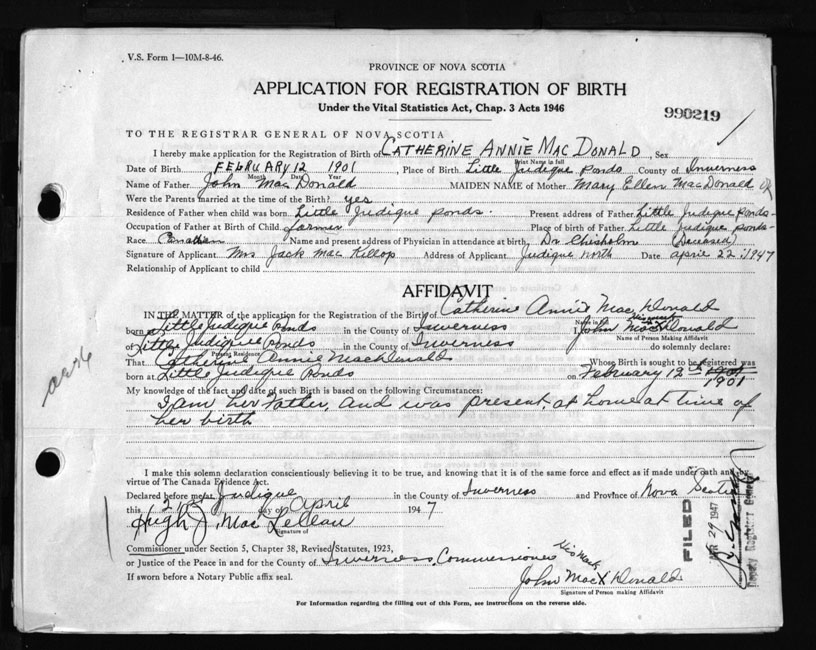 V.S. Form 1—10M-8-46.
PROVINCE OF NOVA SCOTIA
APPLICATION FOR REGISTRATION OF BIRTH
Under the Vital Statistics Act, Chap. 3 Acts 1946
990219
TO THE REGISTRAR GENERAL OF NOVA SCOTIA
I hereby make application for the Registration of Birth of CATHERINE ANNIE MAC DONALD, Sex
Print Name in full
Date of Birth FEBRUARY 12 1901, Place of Birth Little Judique Ponds County of Inverness
Month Date Year
Name of Father John Mac Donald MAIDEN NAME of Mother Mary Ellen MacDonald
Were the Parents married at the time of the Birth? yes
Residence of Father when child was born Little Judique Ponds. Present address of Father Little Judique Ponds-
Occupation of Father at Birth of Child farmer Place of birth of Father Little Judique Ponds-
Race Canadian Name and present address of Physician in attendance at birth, Dr Chisholm (Deceased)
Signature of Applicant Mrs Jack Mac Killop Address of Applicant Judique North Date april 22, 1947
Relationship of Applicant to child
AFFIDAVIT
IN THE MATTER of the application for the Registration of the Birth of Catherine Annie Mac Donald
Name in full
born at Little Judique Ponds in the County of Inverness I, John MacXDonald
his mark
Name of Person Making Affidavit
of Little Judique Ponds in the County of Inverness do solemnly declare:
Present Residence
That Catherine Annie MacDonald Whose Birth is sought to be registered was
born at Little Judique Ponds on February 12th 1901
My knowledge of the fact and date of such Birth is based on the following Circumstances:
I am her Father, and was present, at home at time of
her birth
I make this solemn declaration conscientiously believing it to be true, and knowing that it is of the same force and effect as if made under oath and by
virtue of The Canada Evidence Act.
Declared before me at Judique in the County of Inverness and Province of Nova Scotia
this 21st day of April 1947
Hugh J. MacLellan
Signature of
Commissioner under Section 5, Chapter 38, Revised Statutes, 1923,
or Justice of the Peace in and for the County of Inverness, Commissioner
If sworn before a Notary Public affix seal.
His Mark
John MacXDonald
Signature of Person making Affidavit
For Information regarding the filling out of this Form, see instructions on the reverse side.
FILED
APR 29 1947
Deputy Registrar General